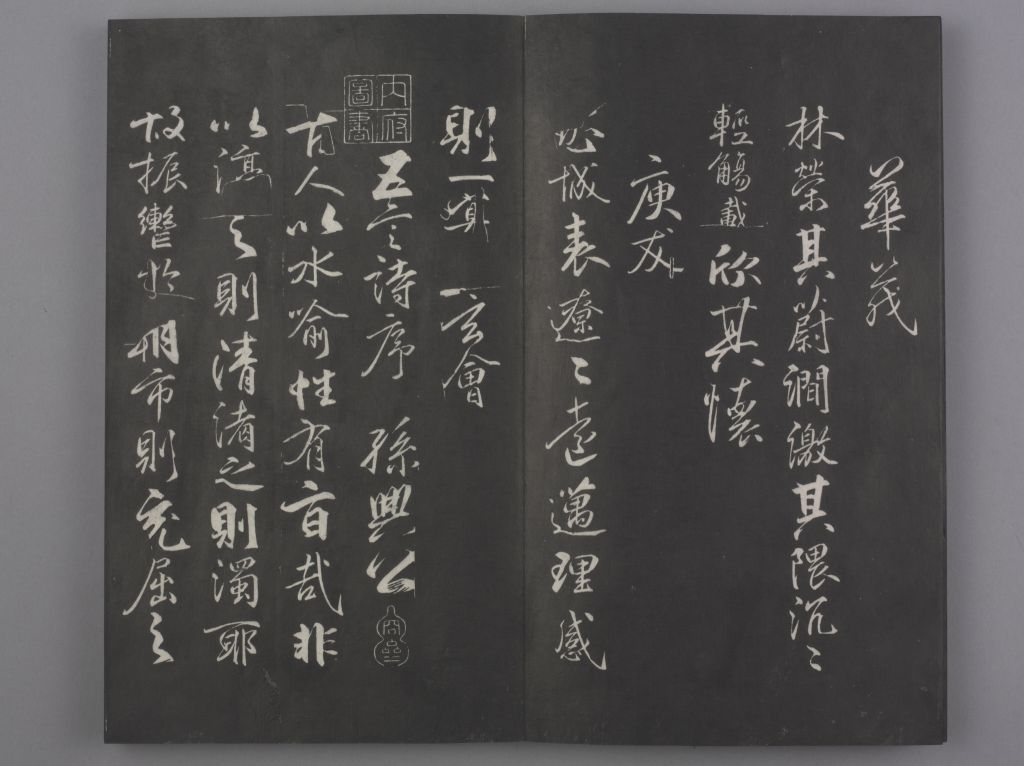 華茂
林榮其蔚澗激其隈汎〻
輕觴載欣其懷
庾友
心域表遼〻遠邁理感
則一冥 玄會
內府圖書
五言詩序 孫興公
古人以水喻性有旨哉非
以渟之則清淆之則濁耶
故振轡於朝市則充屈之